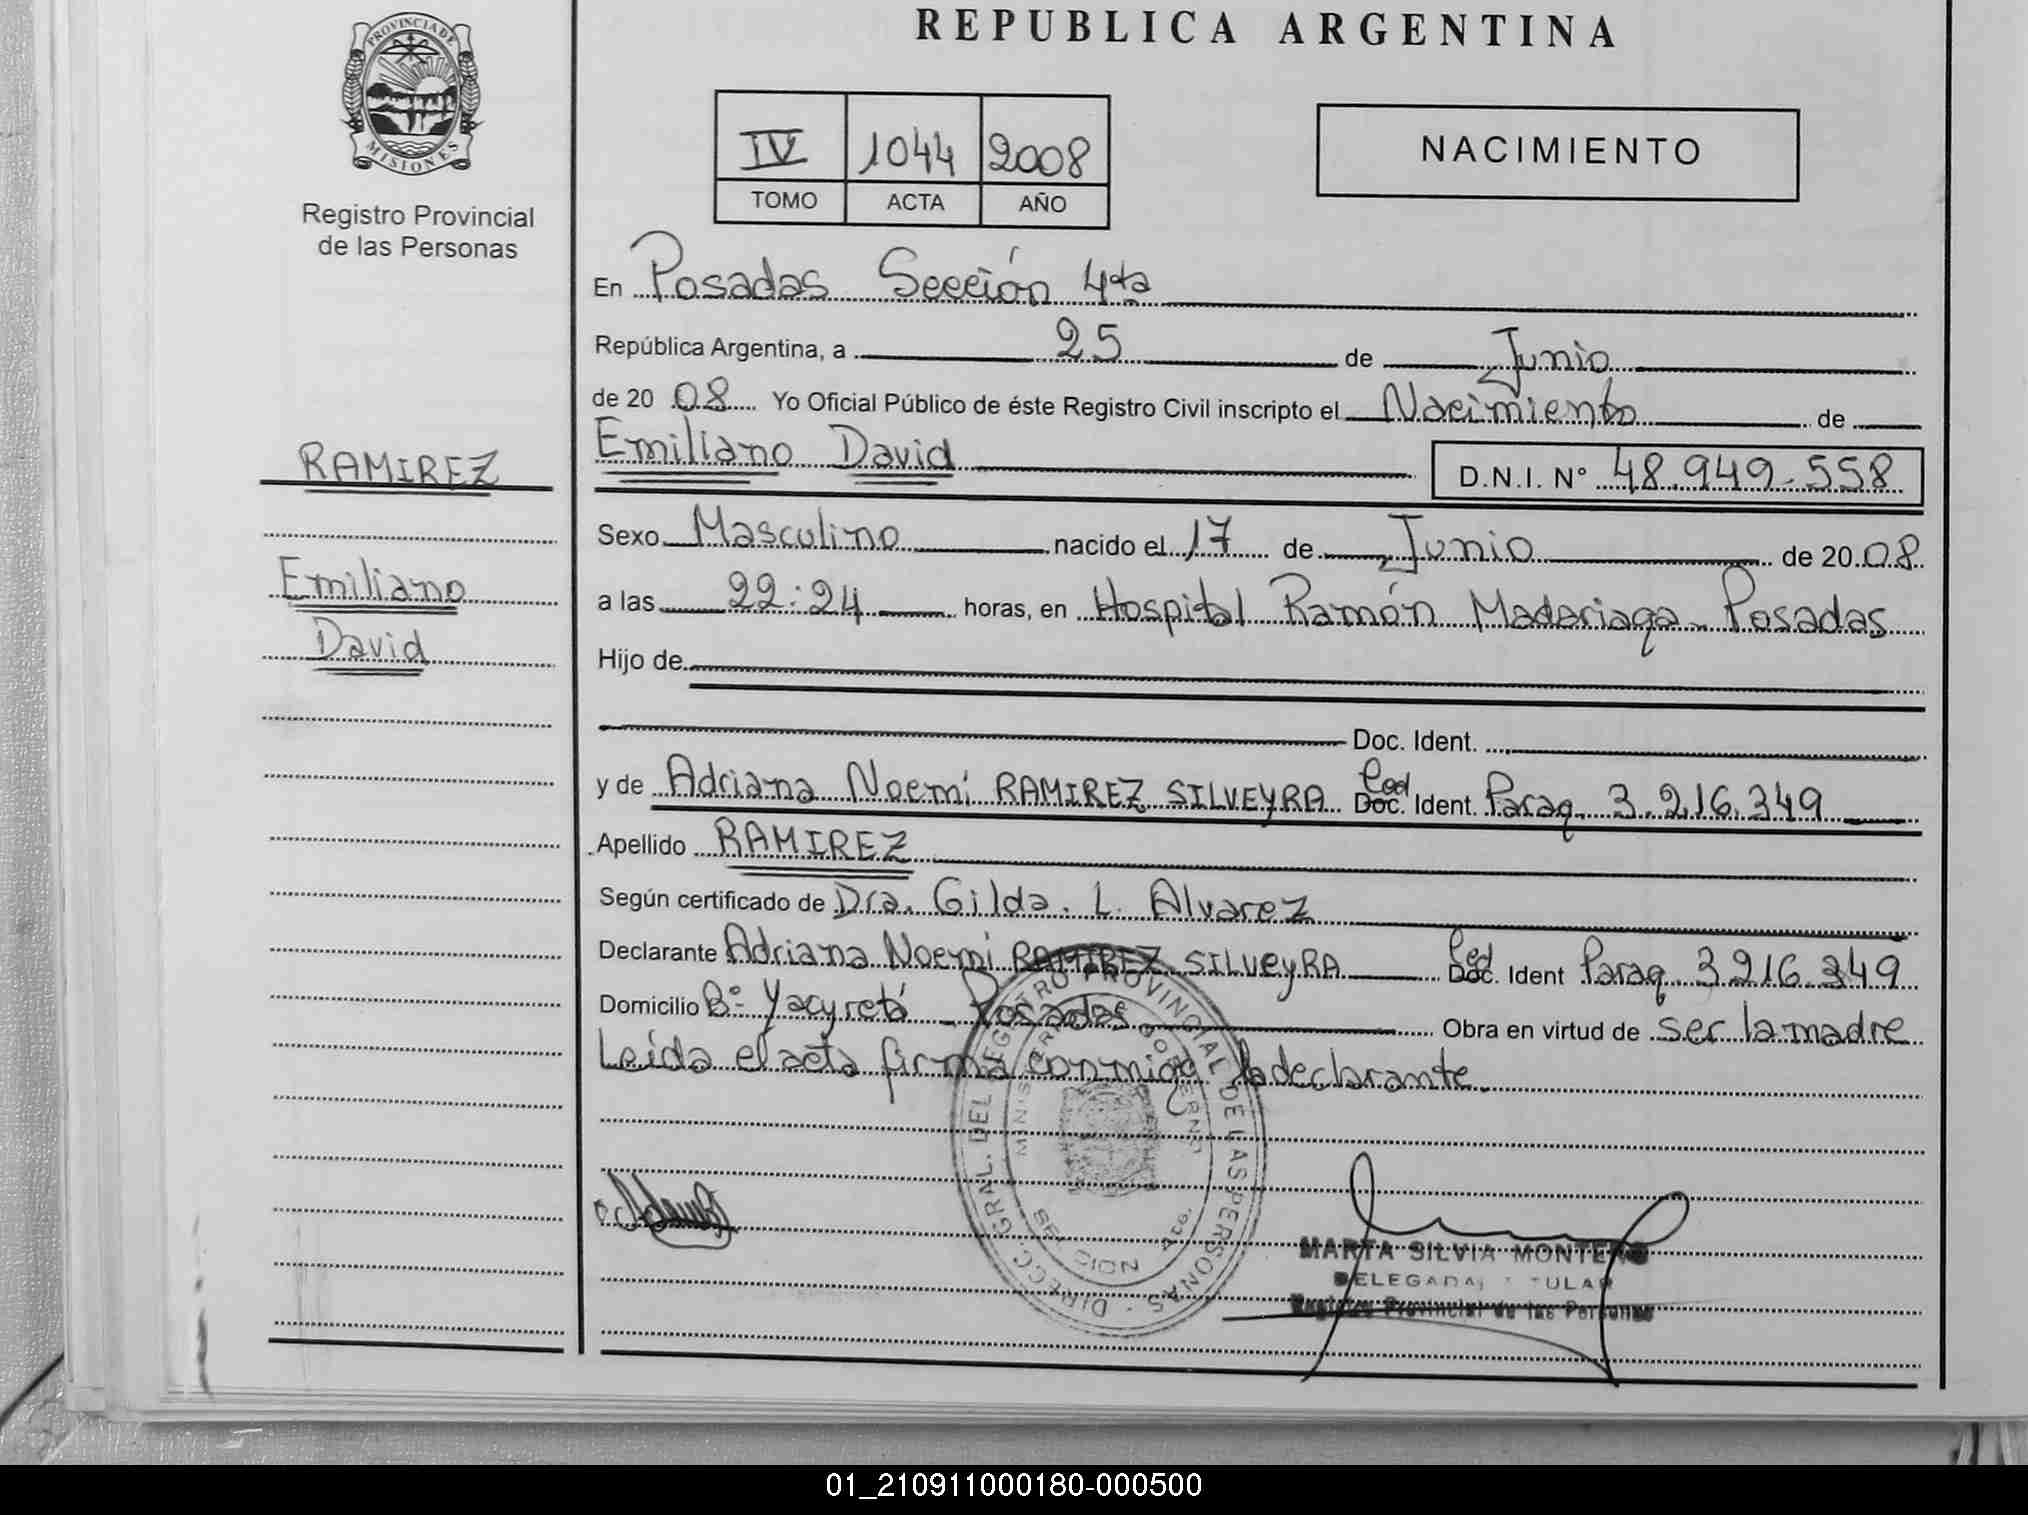 PROVINCIA DE
MISIONES
Registro Provincial
de las Personas
RAMIREZ
Emiliano
David
REPUBLICA ARGENTINA
IV 1044 2008
TOMO ACTA AÑO
NACIMIENTO
En Posadas Sección 4ta
República Argentina, a 25 de Junio
de 20 08 Yo Oficial Público de éste Registro Civil inscripto el Nacimiento de
Emiliano David D.N.I. Nº 48.949.558
Sexo Masculino nacido el 17 de Junio de 20 08
a las 22:24 horas, en Hospital Ramón Madariaga - Posadas
Hijo de
Doc. Ident.
y de Adriana Noemí RAMIREZ SILVEYRA Ced Doc. Ident. Parag. 3.216.349
Apellido RAMIREZ
Según certificado de Dra. Gilda. L. Alvarez
Declarante Adriana Noemi RAMIREZ SILVEYRA Ced Doc. Ident Parag. 3.216.349
Domicilio Bº Yacyretá - Posadas Obra en virtud de ser la madre
Leída el acta firma conmigo la declarante.
DIRECC. GRAL. DEL REGISTRO PROVINCIAL DE LAS PERSONAS
MINISTERIO GOBIERNO
SECCION 4ta.
MARTA SILVIA MONTERO
DELEGADA TITULAR
Registro Provincial de las Personas
01_210911000180-000500